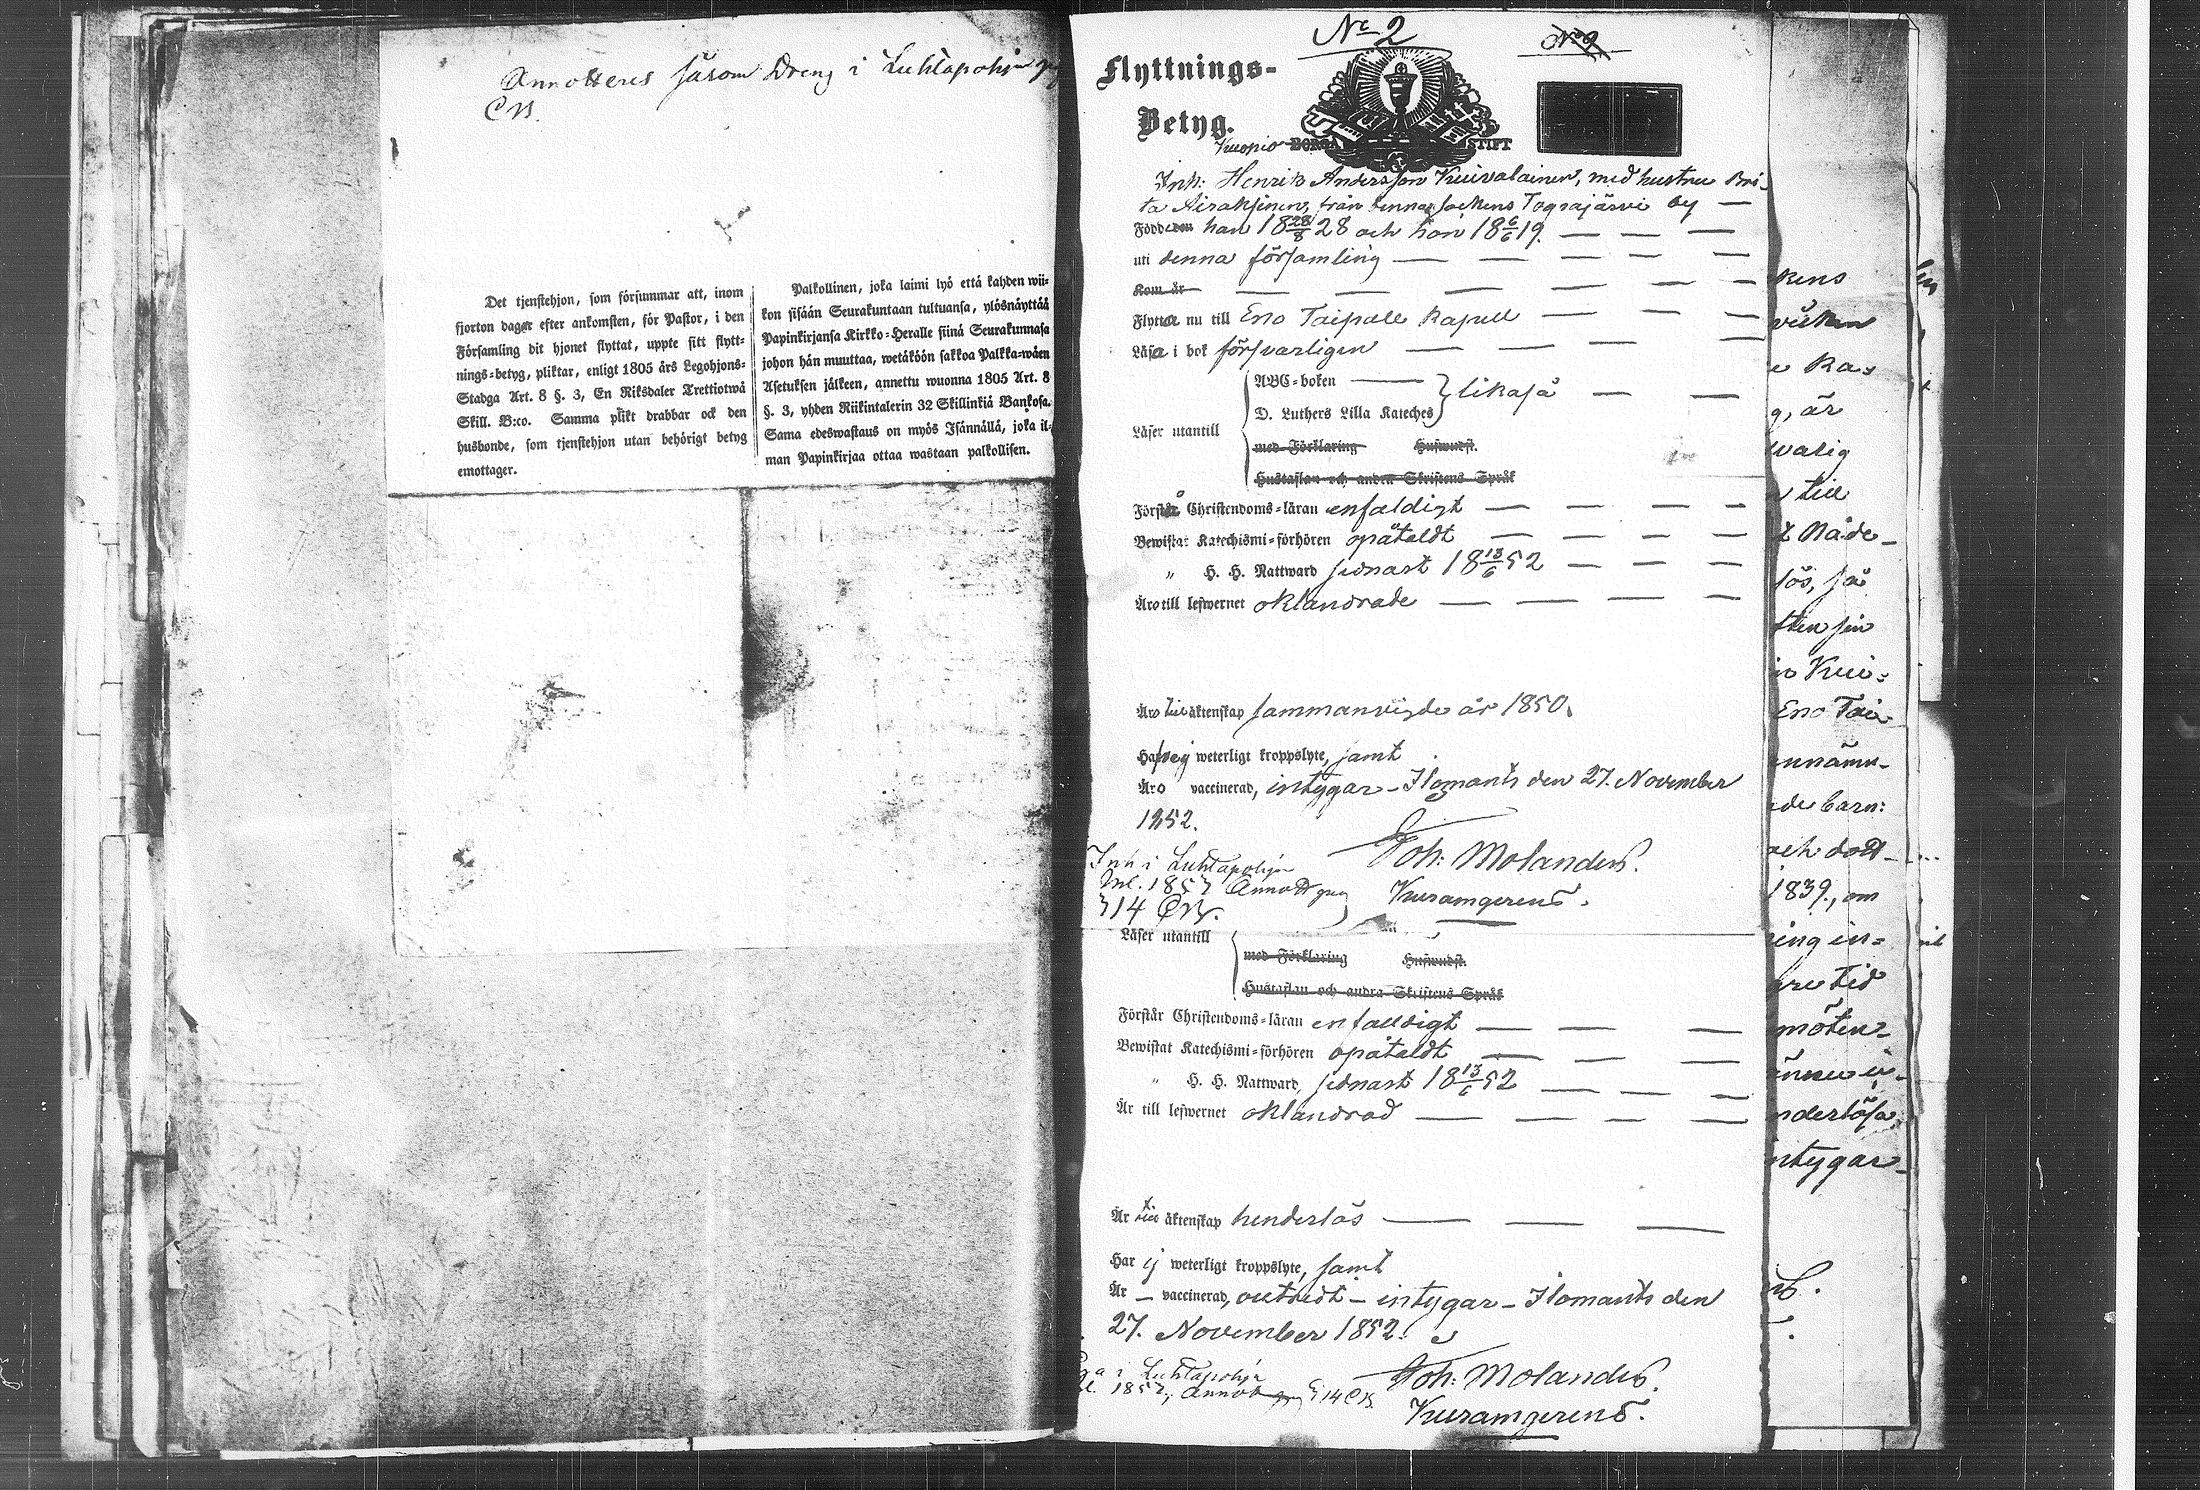 Annotteras såsom Dreng i Luhtapohja
CB.
Det tjenstehjon, som försummar att, inom
fjorton dagar efter ankomsten, för Pastor, i den
Församling dit hjonet flyttat, uppte sitt flytt-
nings-betyg, pliktar, enligt 1805 års Legohjons-
Stadga Art. 8 §. 3, En Riksdaler Trettiotwå
Skill. B:co. Samma plikt drabbar ock den
husbonde, som tjenstehjon utan behörigt betyg
emottager.
Palkollinen, joka laimi lyö että kahden wii-
kon sisään Seurakuntaan tultuansa, ylösnäyttää
Papinkirjansa Kirkko-Heralle siinä Seurakunnasa
johon hän muuttaa, wetäköön sakkoa Palkka-wäen
Asetuksen jälkeen, annettu wuonna 1805 Art. 8
§. 3, yhden Riikintalerin 32 Skillinkiä Bankosa.
Sama edeswastaus on myös Isännällä, joka il-
man Papinkirjaa ottaa wastaan palkollisen.
No 2
No 9
Flyttnings-
Betyg.
Kuopio STIFT
Inh: Henrik Andersson Kuivalainen, med hustru Bri-
ta Airaksinen, från denna sockens Tograjärvi by —
Född han 18 28/8 28 och hon 18 6/6 19. — — —
uti denna församling — — — — —
Kom år — — — — — — —
Flyttar nu till Eno Taipale Kapell — — — —
Läsa i bok försvarligen — — — — —
Läser utantill
ABC-boken —
D. Luthers Lilla Kateches
likaså — —
med Förklaring Husandst.
Hustaflan och andra Skriftens Språk
Förstå Christendoms-läran enfaldigt — — — —
Bewistat Katechismi-förhören opåtaldt — — — —
„ H. H. Nattward sednast 18 13/6 52 — — —
Äro till lefwernet oklandrade — — — —
Äro till äktenskap sammanvigde år 1850.
Hafva ej weterligt kroppslyte, samt
Äro vaccinerad, intygar – Ilomants den 27. November
1852.
Joh: Molander.
Kuramgerens.
Inh i Luhtapohja
Inl. 1853 Annot
314 CB.
Läser utantill
med Förklaring Husandst.
Hustaflan och andra Skriftens Språk
Förstår Christendoms-läran enfaldigt — — —
Bewistat Katechismi-förhören opåtaldt — — —
„ H. H. Nattward, sednast 18 13/6 52 — — —
Är till lefwernet oklandrad — — — —
Är till äktenskap hinderlös — — —
Har ej weterligt kroppslyte, samt
Är — vaccinerad, utredt – intygar – Ilomants den
27. November 1852.
Joh: Molander.
Kuramgerens.
i Luhtapohja
1853, Annot 314 CB
kens
viken
Ka-
, är
varig
till
Nåde-
lös, så
tten sin
Kui-
Eno Tai
ennämn-
de barn:
och dott-
1839., om
ing in-
tid
möten-
nderlösa,
ntygar-